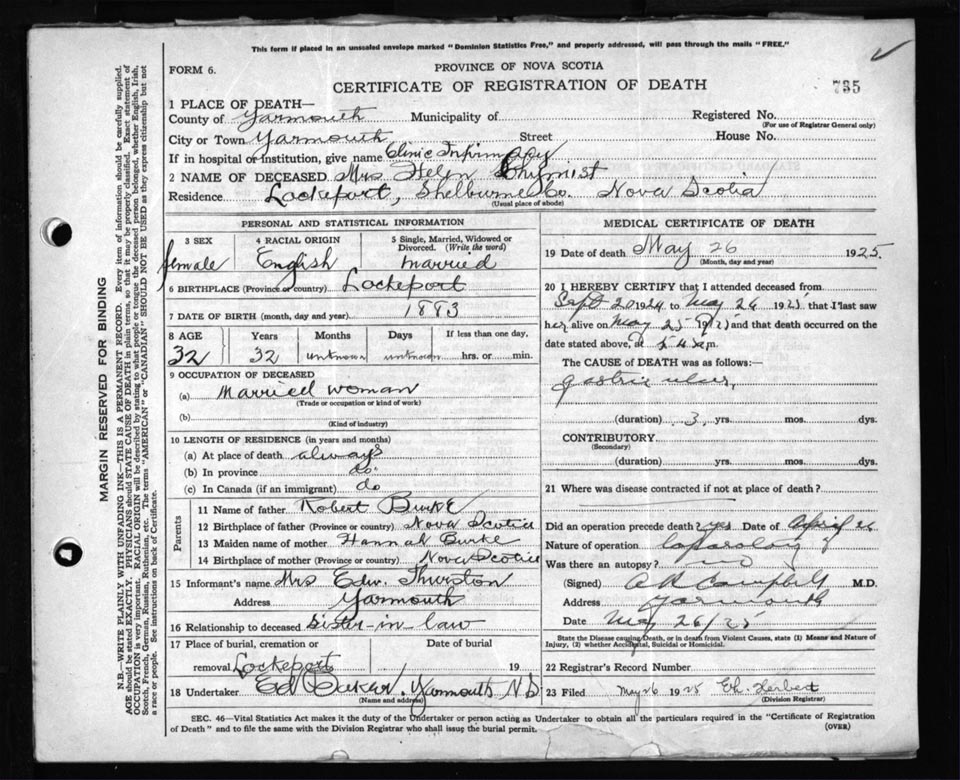 This form if placed in an unsealed envelope marked "Dominion Statistics Free," and properly addressed, will pass through the mails "FREE."
FORM 6.
PROVINCE OF NOVA SCOTIA
CERTIFICATE OF REGISTRATION OF DEATH
735
1 PLACE OF DEATH—
County of Yarmouth Municipality of Registered No.
(For use of Registrar General only)
City or Town Yarmouth Street House No.
If in hospital or institution, give name Clinic Infirmary
2 NAME OF DECEASED Mrs Helen Chymist
Residence Lockeport, Shelburne Co. Nova Scotia
(Usual place of abode)
PERSONAL AND STATISTICAL INFORMATION
3 SEX 4 RACIAL ORIGIN 5 Single, Married, Widowed or Divorced. (Write the word)
female English married
6 BIRTHPLACE (Province or country) Lockeport
7 DATE OF BIRTH (month, day and year) 1883
8 AGE Years Months Days If less than one day,
32 32 unknown unknown hrs. or min.
9 OCCUPATION OF DECEASED
(a) Married woman
(Trade or occupation or kind of work)
(b)
(Kind of industry)
10 LENGTH OF RESIDENCE (in years and months)
(a) At place of death always
(b) In province do
(c) In Canada (if an immigrant) do
Parents
11 Name of father Robert Burke
12 Birthplace of father (Province or country) Nova Scotia
13 Maiden name of mother Hannah Burke
14 Birthplace of mother (Province or country) Nova Scotia
15 Informant's name Mrs Edw. Thurston
Address Yarmouth
16 Relationship to deceased Sister-in-law
17 Place of burial, cremation or Date of burial
removal Lockeport 19
18 Undertaker Ed Baker, Yarmouth N S
(Name and address)
MEDICAL CERTIFICATE OF DEATH
19 Date of death May 26 1925
(Month, day and year)
20 I HEREBY CERTIFY that I attended deceased from
Sept 20 1924 to May 26 1925 that I last saw
her alive on May 25 1925 and that death occurred on
date stated above, at m.
The CAUSE OF DEATH was as follows:—
gastric ulcer,
(duration) 3 yrs. mos. dys.
CONTRIBUTORY
(Secondary)
(duration) yrs. mos. dys.
21 Where was disease contracted if not at place of death?
Did an operation precede death? yes Date of April 26
Nature of operation
Was there an autopsy? no
(Signed) A R Campbell M.D.
Address Yarmouth
Date May 26/25
State the Disease causing Death, or in death from Violent Causes, state (1) Means and Nature of
Injury, (2) whether Accidental, Suicidal or Homicidal.
22 Registrar's Record Number
23 Filed May 26 1925 Herbert
(Division Registrar)
SEC. 46—Vital Statistics Act makes it the duty of the Undertaker or person acting as Undertaker to obtain all the particulars required in the "Certificate of Registration
of Death" and to file the same with the Division Registrar who shall issue the burial permit.
(OVER)
MARGIN RESERVED FOR BINDING
N.B.—WRITE PLAINLY WITH UNFADING INK—THIS IS A PERMANENT RECORD. Every item of information should be carefully supplied.
AGE should be stated EXACTLY. PHYSICIANS should STATE CAUSE OF DEATH in plain terms, so that it may be properly classified. Exact statement of
OCCUPATION is very important. RACIAL ORIGIN will be described by stating to what people or tongue the deceased person belonged, whether English, Irish,
Scotch, French, German, Russian, Ruthenian, etc. The terms "AMERICAN" or "CANADIAN" SHOULD NOT BE USED as they express citizenship but not
a race or people. See instructions on back of Certificate.